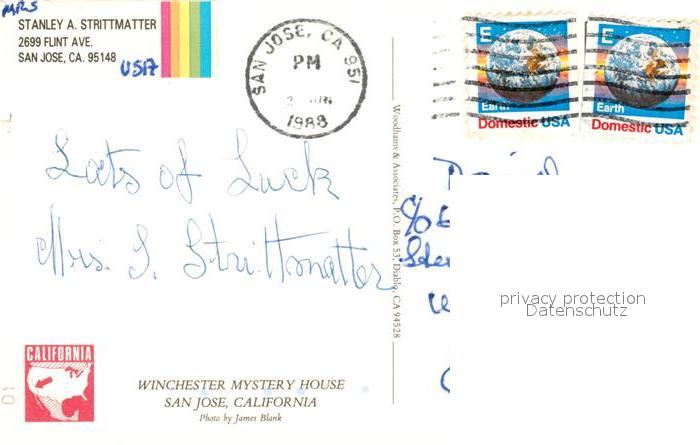 MRS
STANLEY A. STRITTMATTER
2699 FLINT AVE.
SAN JOSE, CA. 95148
USA
SAN JOSE, CA 951
PM
JUN
1988
E
Earth
Domestic USA
E
Earth
Domestic USA
Lots of Luck
Mrs. S. Strittmatter
Woodhams & Associates, P.O. Box 53, Diablo, CA 94528
C/O
privacy protection
Datenschutz
CALIFORNIA
WINCHESTER MYSTERY HOUSE
SAN JOSE, CALIFORNIA
Photo by James Blank